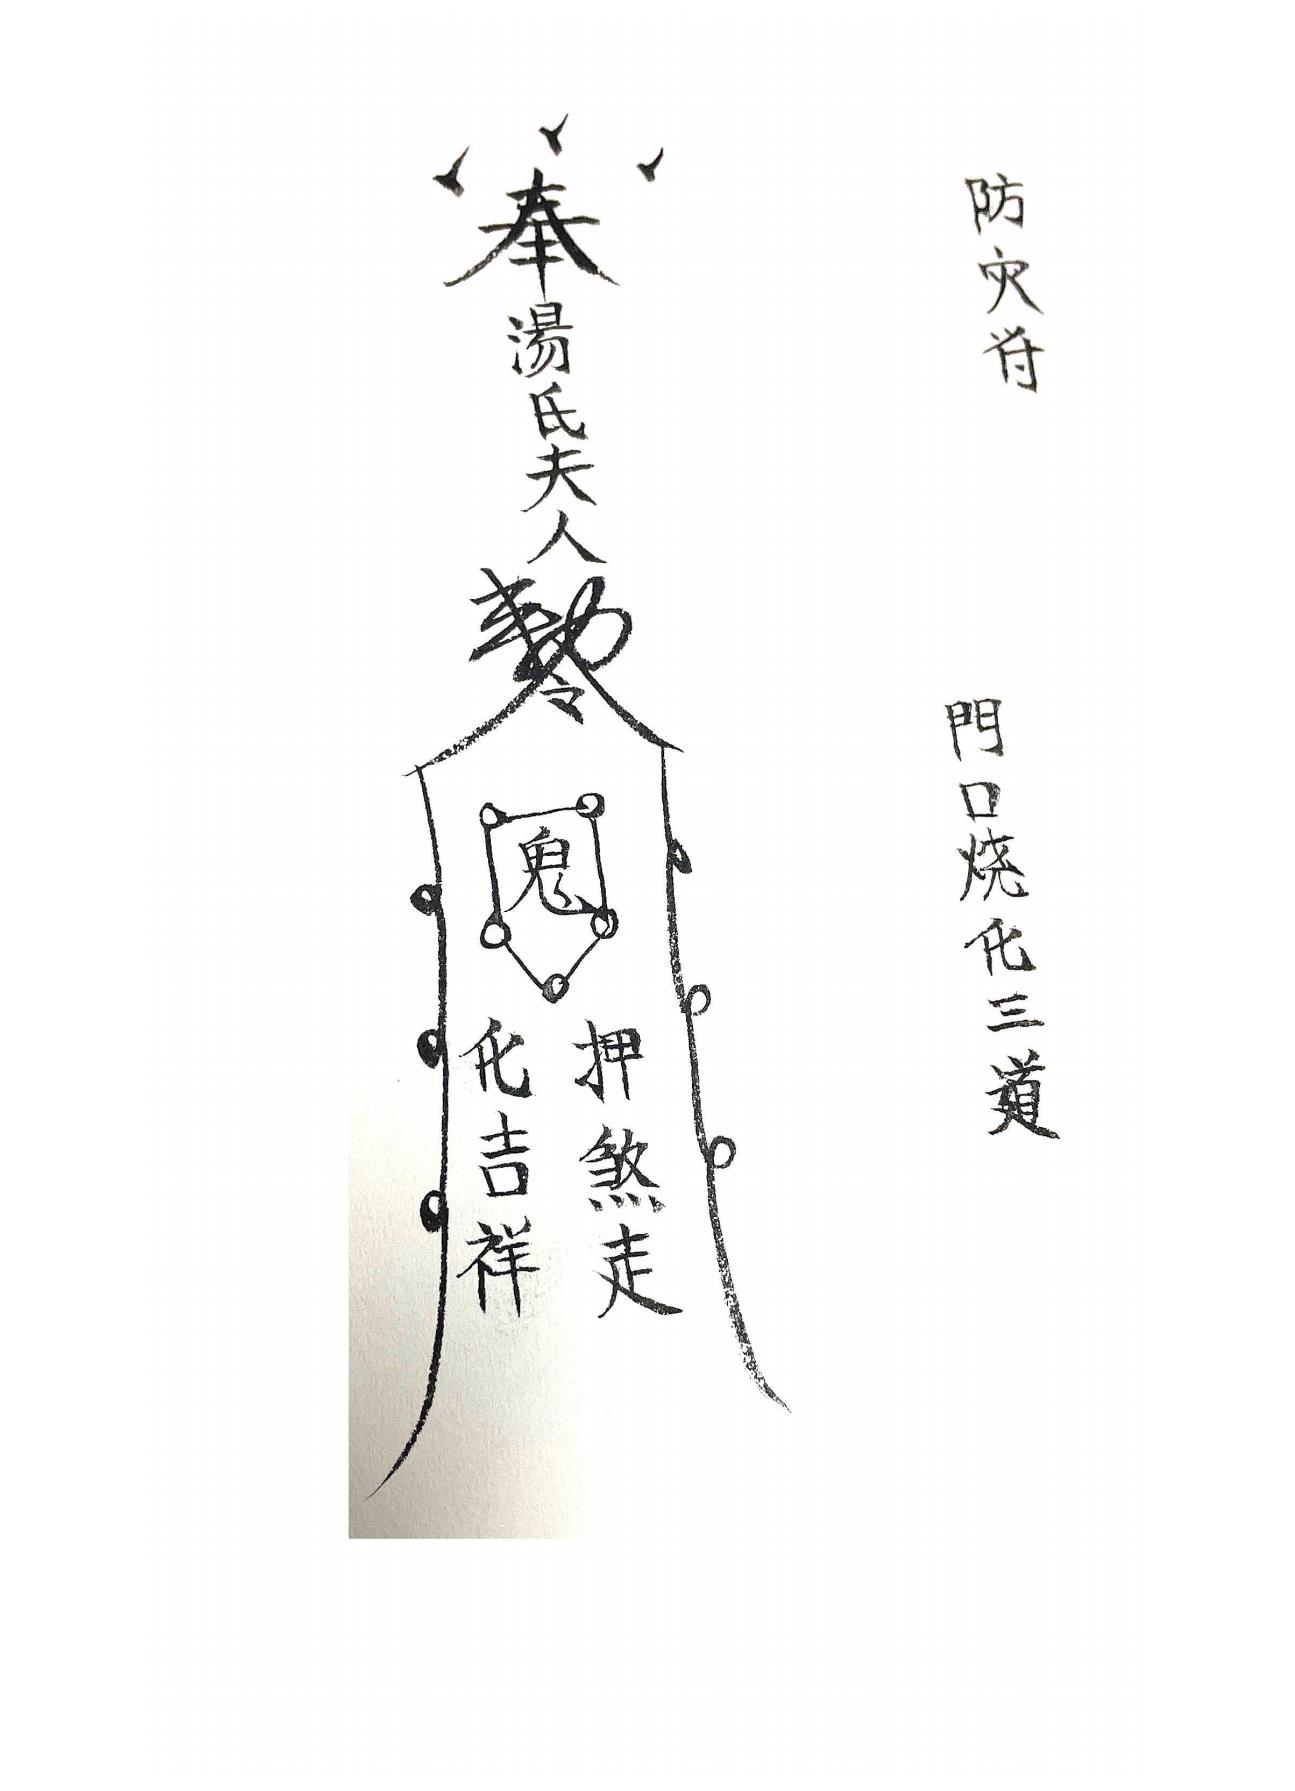 防灾符
門口烧化三道
奉湯氏夫人
勅令
鬼
押煞走
化吉祥